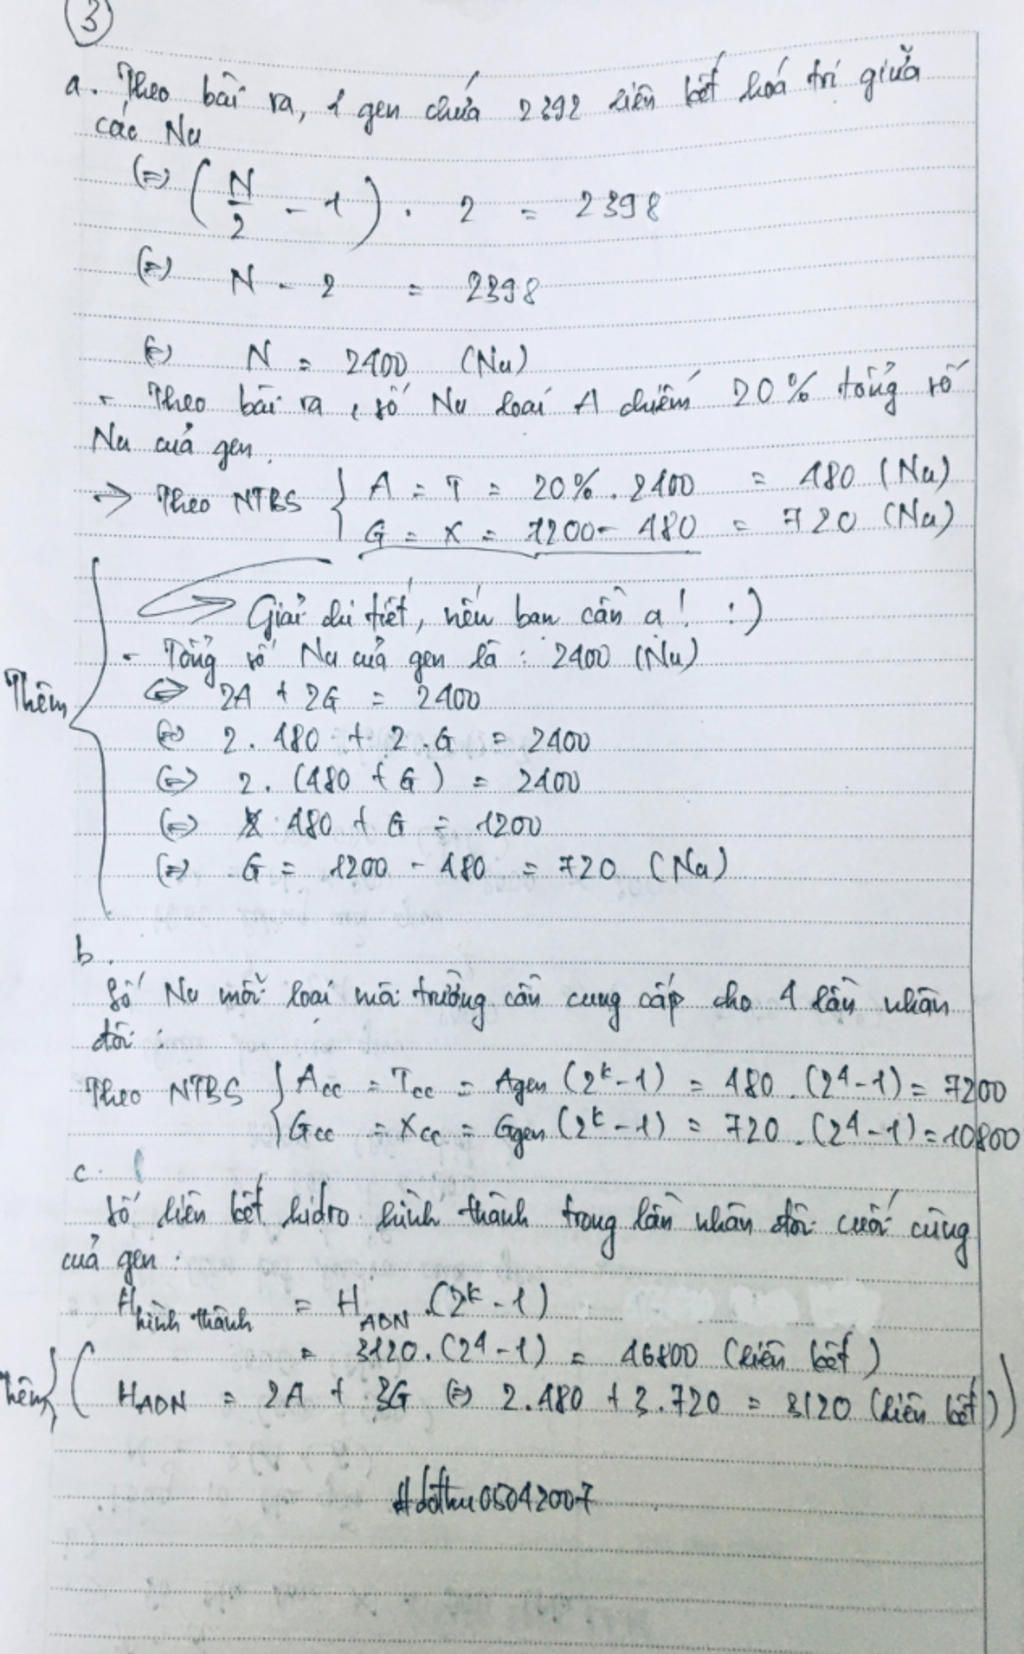 3
a. Theo bài ra, 1 gen chứa 2392 liên kết hoá trị giữa
các Nu
(=) (N/2 - 1) . 2 = 2398
(=) N - 2 = 2398
(=) N = 2400 (Nu)
- Theo bài ra, số Nu loại A chiếm 20% tổng số
Nu của gen.
-> Theo NTBS { A = T = 20% . 2400 = 480 (Nu)
G = X = 1200 - 480 = 720 (Nu)
Giải chi tiết, nếu bạn cần ạ! :)
- Tổng số Nu của gen là : 2400 (Nu)
Thêm
(=) 2A + 2G = 2400
(=) 2. 480 + 2 .G = 2400
(=) 2. (480 + G) = 2400
(=) 480 + G = 1200
(=) G = 1200 - 480 = 720 (Nu)
b.
Số Nu mỗi loại môi trường cần cung cấp cho 4 lần nhân
đôi :
Theo NTBS { Acc = Tcc = Agen (2^k - 1) = 480 . (2^4 - 1) = 7200
Gcc = Xcc = Ggen (2^k - 1) = 720 . (2^4 - 1) = 10800
c.
Số liên kết hidro hình thành trong lần nhân đôi cuối cùng
của gen :
H hình thành = H ADN . (2^k - 1)
= 3120 . (2^4 - 1) = 46800 (liên kết)
Thêm { ( H ADN = 2A + 3G (=) 2.480 + 3.720 = 3120 (liên kết) )